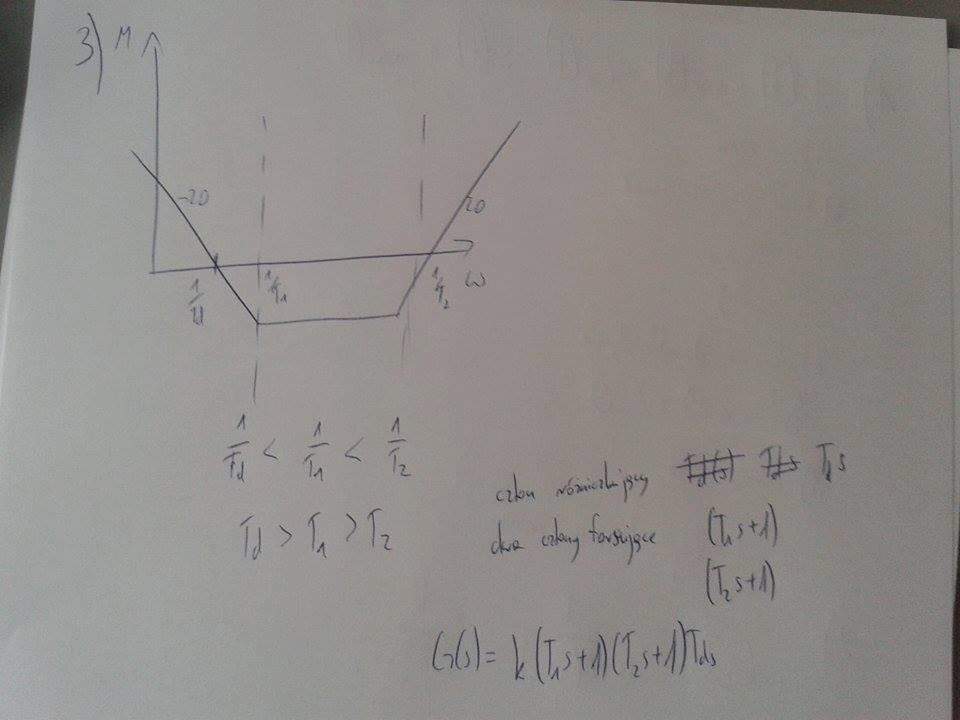 3) M
-20
20
1/Td
1/T₁
1/T₂
ω
1/Td < 1/T₁ < 1/T₂
Td > T₁ > T₂
człon różniczkujący Td(s) Tds Tds
dwa człony forsujące (T₁s+1)
(T₂s+1)
G(s) = k(T₁s+1)(T₂s+1)Tds